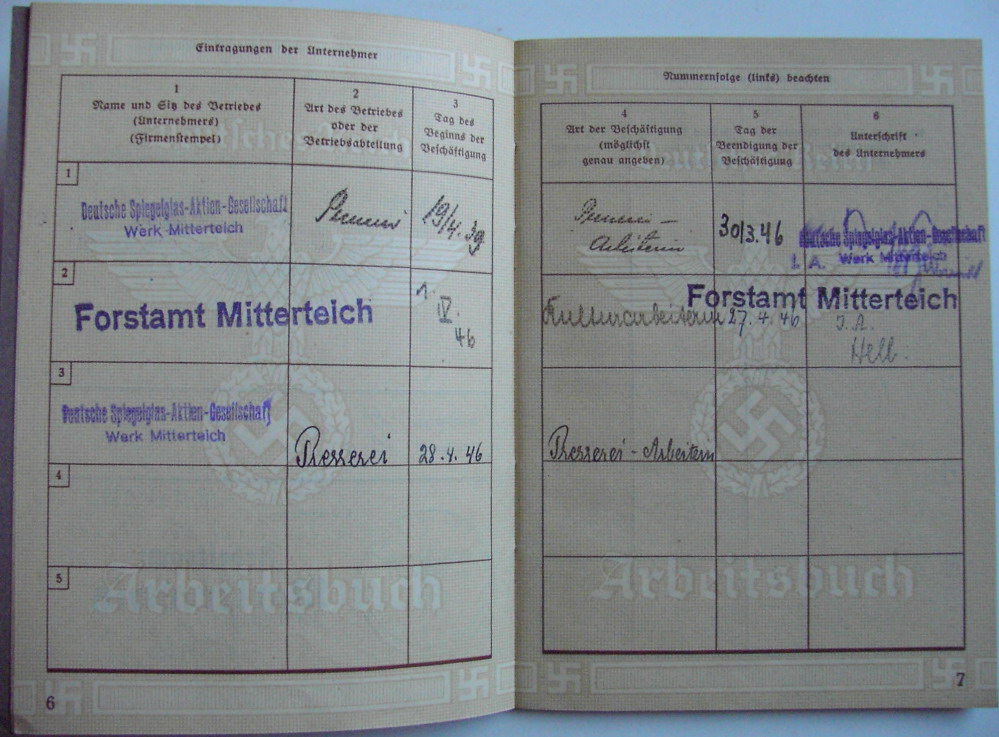 Eintragungen der Unternehmer
1
Name und Sitz des Betriebes
(Unternehmers)
(Firmenstempel)
2
Art des Betriebes
oder der
Betriebsabteilung
3
Tag des
Beginns der
Beschäftigung
1
Deutsche Spiegelglas-Aktien-Gesellschaft
Werk Mitterteich
19/4. 39
2
Forstamt Mitterteich
1.
IV.
46
3
Deutsche Spiegelglas-Aktien-Gesellschaft
Werk Mitterteich
Presserei
28.4.46
4
5
Arbeitsbuch
6
Nummernfolge (links) beachten
4
Art der Beschäftigung
(möglichst
genau angeben)
5
Tag der
Beendigung der
Beschäftigung
6
Unterschrift
des Unternehmers
Deutsches Reich
Arbeiterin
30/3.46
Deutsche Spiegelglas-Aktien-Gesellschaft
I. A. Werk Mitterteich
Forstamt Mitterteich
Kulturarbeiterin
27.4.46
I.A.
Hell.
Presserei-Arbeiterin
Arbeitsbuch
7